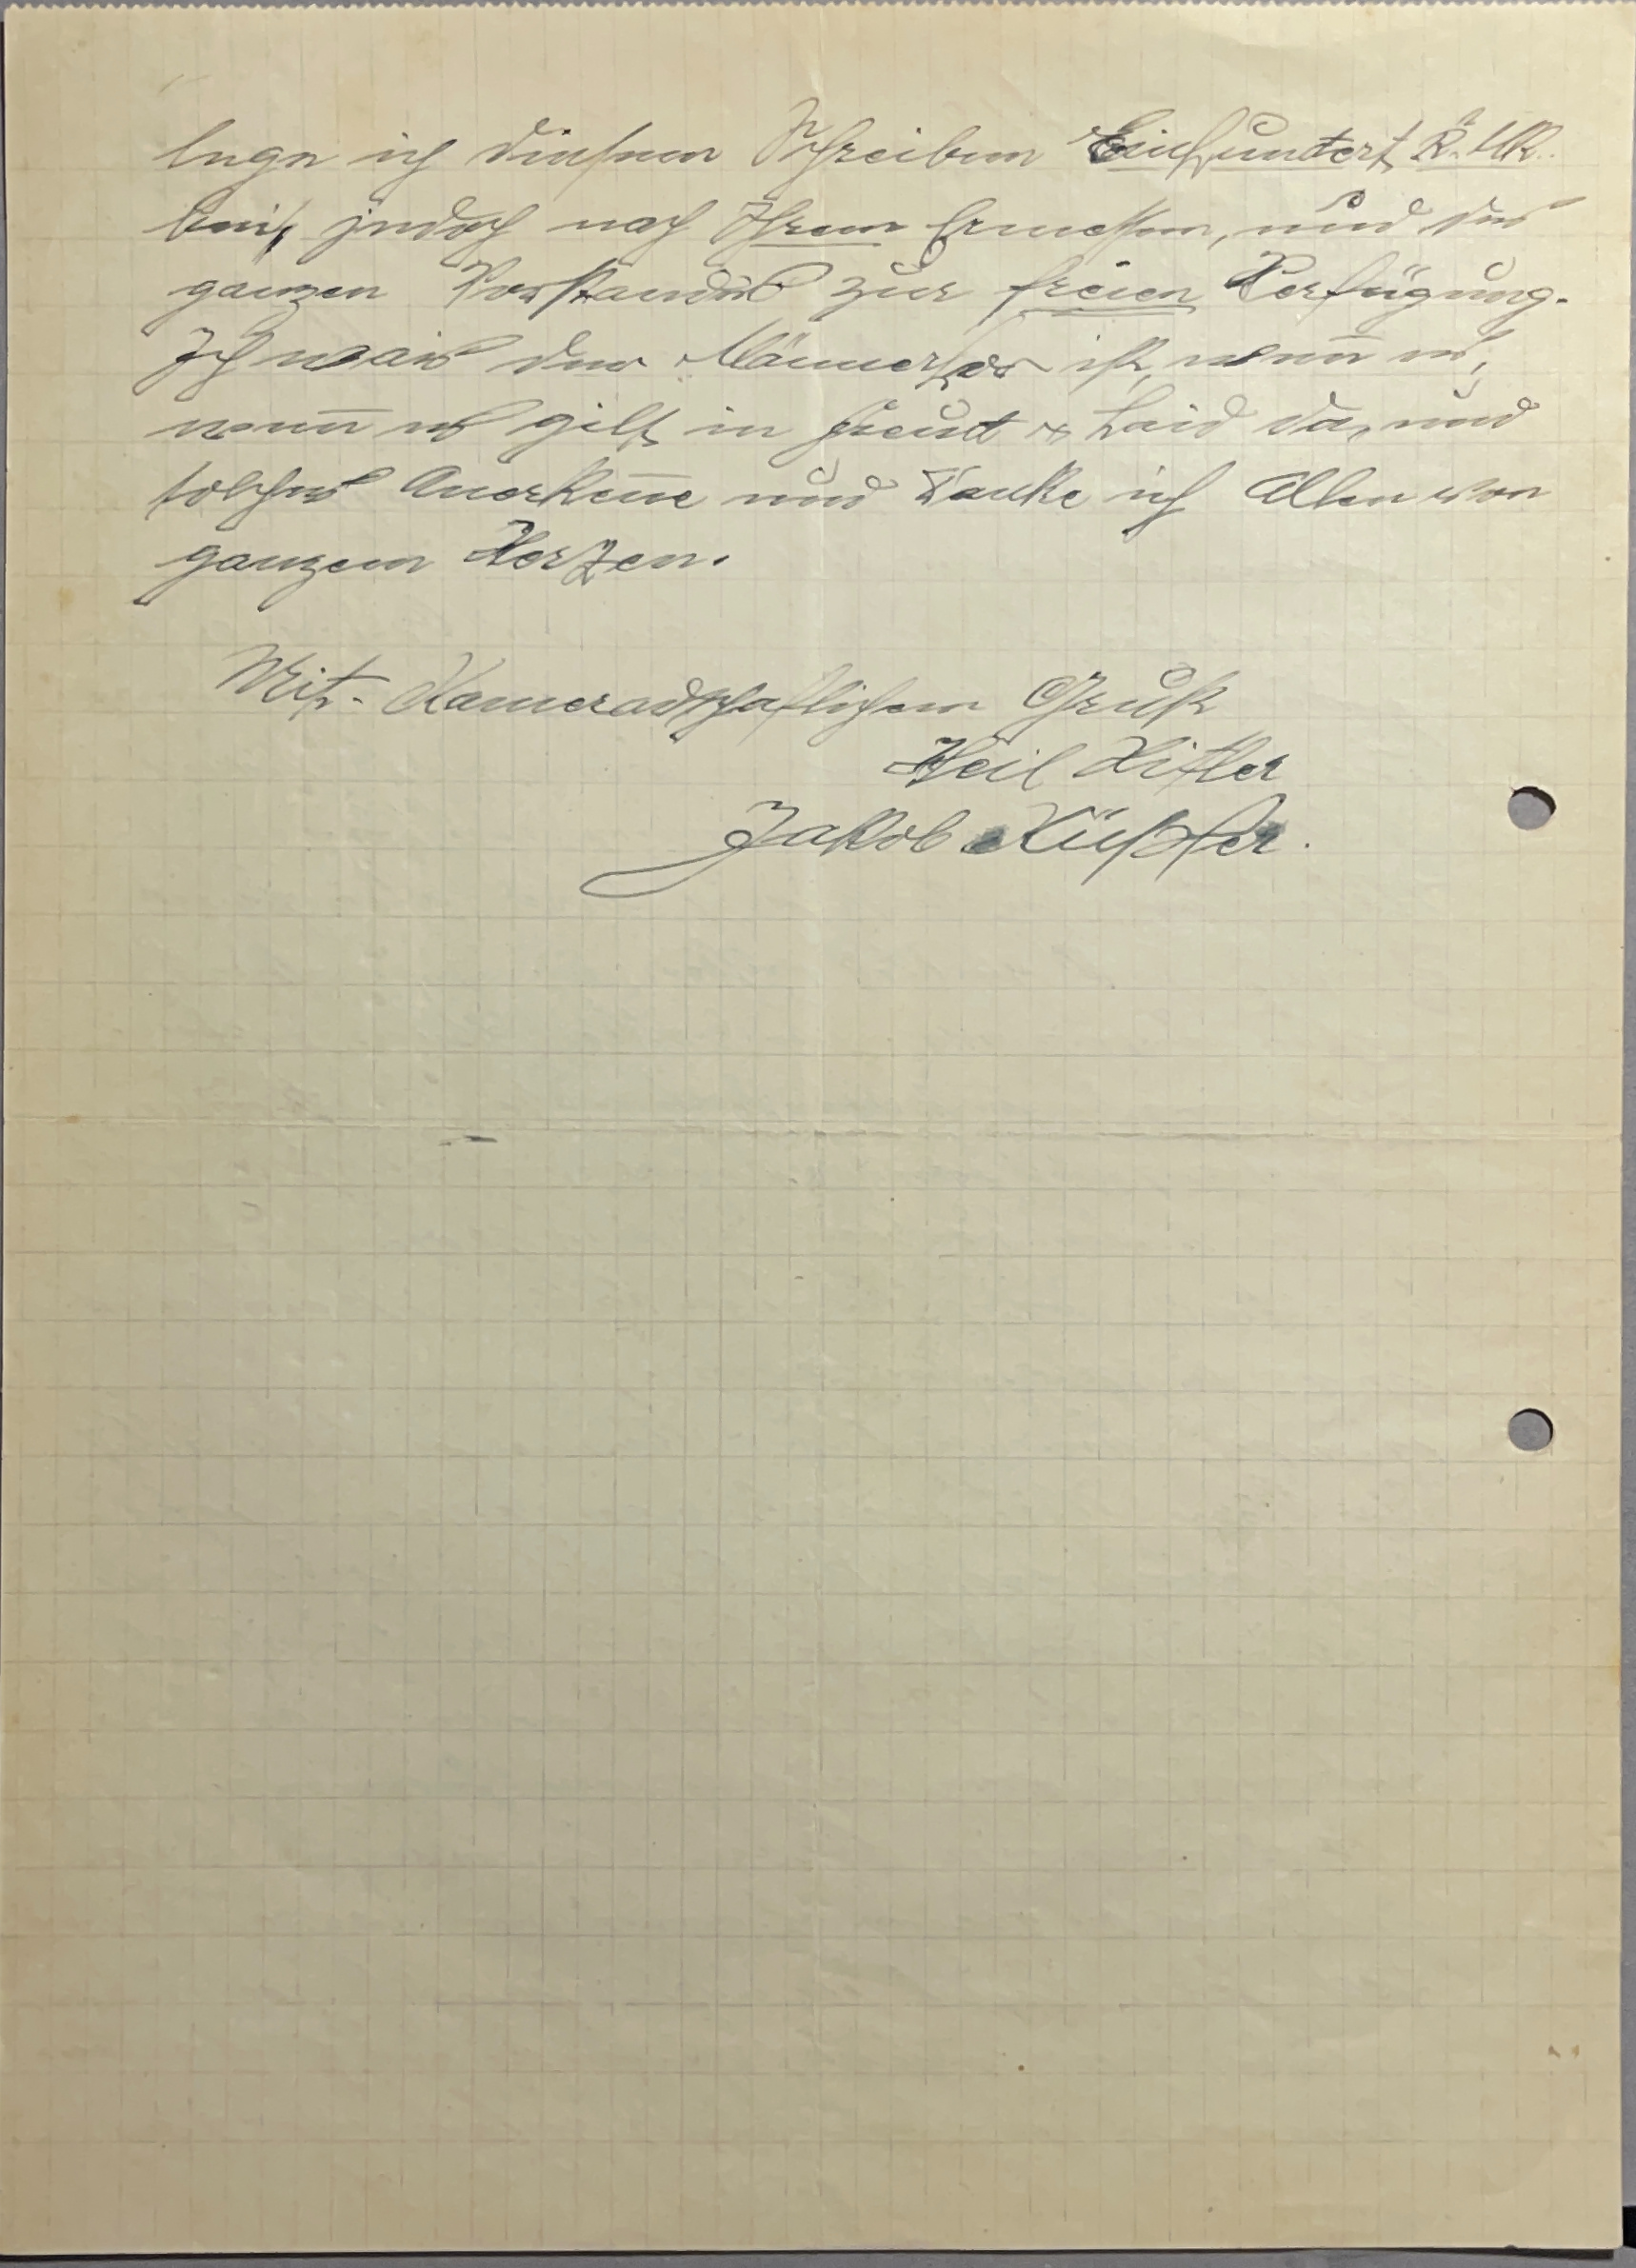 lege ich diesem Schreiben Einhundert R. Mk.
bei, jedoch nach Ihrem Ermessen, und des
ganzen Vorstandes zur freien Verfügung.
Ich weis der Männerchor ist, wenn es,
wenn es gilt in Freud & Leid da, und
solches Anerkenne und Danke ich Allen von
ganzem Herzen.
Mit Kameradschaftlichem Gruß
Heil Hitler
Jakob